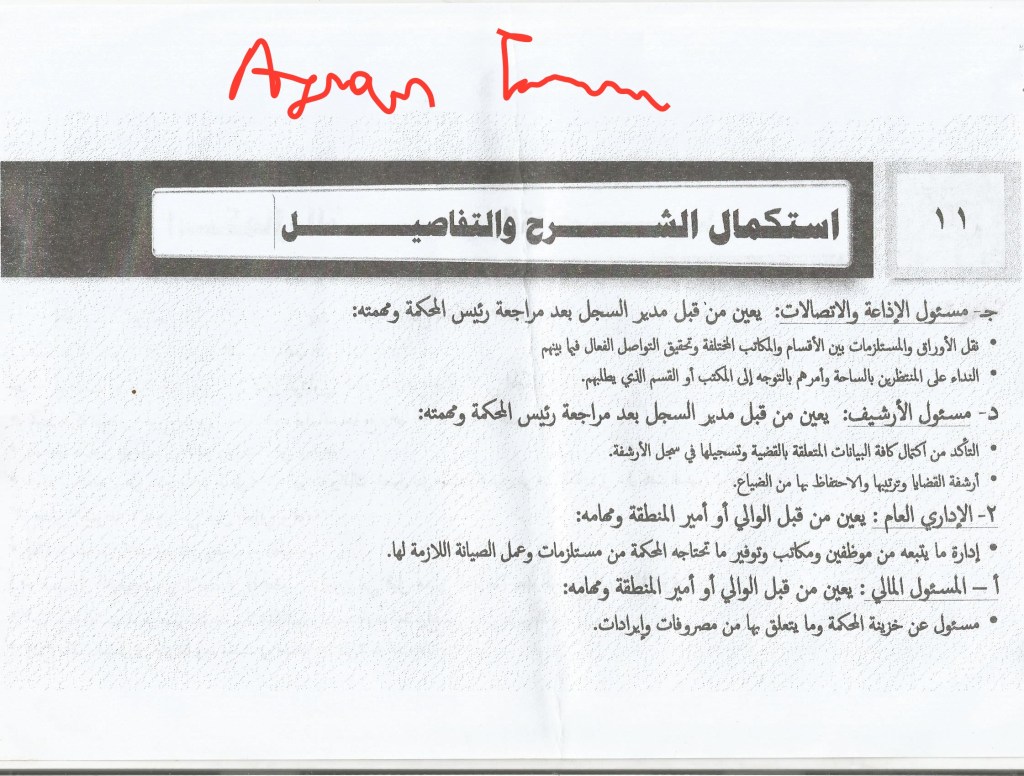 ١١
استكمال الشرح والتفاصيل
جـ- مسئول الإذاعة والاتصالات: يعين من قبل مدير السجل بعد مراجعة رئيس المحكمة ومهمته:
• نقل الأوراق والمستلزمات بين الأقسام والمكاتب المختلفة وتحقيق التواصل الفعال فيما بينهم
• النداء على المنتظرين بالساحة وأمرهم بالتوجه إلى المكتب أو القسم الذي يطلبهم.
د- مسئول الأرشيف: يعين من قبل مدير السجل بعد مراجعة رئيس المحكمة ومهمته:
• التأكد من اكتمال كافة البيانات المتعلقة بالقضية وتسجيلها في سجل الأرشفة.
• أرشفة القضايا وترتيبها والاحتفاظ بها من الضياع.
٢- الإداري العام : يعين من قبل الوالي أو أمير المنطقة ومهامه:
• إدارة ما يتبعه من موظفين ومكاتب وتوفير ما تحتاجه المحكمة من مستلزمات وعمل الصيانة اللازمة لها.
أ – المسئول المالي : يعين من قبل الوالي أو أمير المنطقة ومهامه:
• مسئول عن خزينة المحكمة وما يتعلق بها من مصروفات وإيرادات.